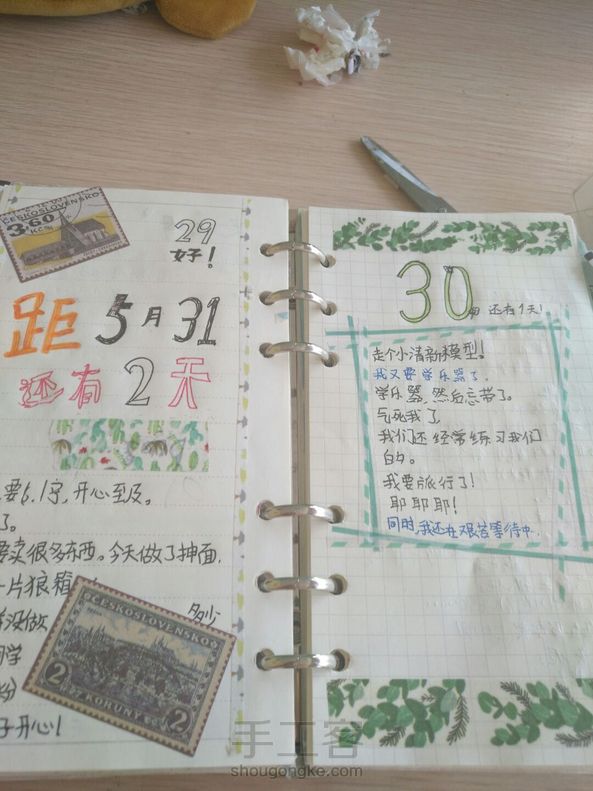 ČESKOSLOVENSKO
3.60
KČS
29
好!
距 5月31
还有2天
要6.1了,开心至及。
了。
要卖很多东西。今天做了抻面,
一片狼藉
没做
ČESKOSLOVENSKO
2 KORUNY 2
开心!
30
还有1天!
走个小清新模型!
我又要学乐器了,
学乐器,然后忘带了。
气死我了,
我们还经常练习我们
自的。
我要旅行了!
耶耶耶!
同时,我还在艰苦等待中.
手工客
shougongke.com